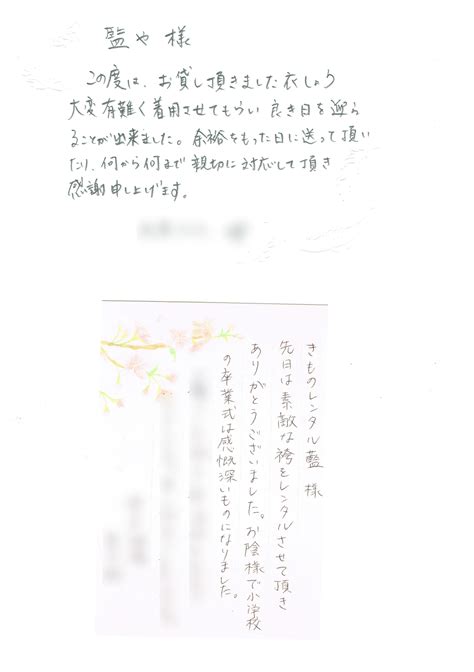 藍や様
この度は、お貸し頂きました衣しょう
大変有難く着用させてもらい良き日を迎え
ることが出来ました。余裕をもった日に送って頂い
たり、何から何まで親切に対応して頂き
感謝申し上げます。
きものレンタル藍 様
先日は素敵な袴をレンタルさせて頂き
ありがとうございました。お陰様で小学校
の卒業式は感慨深いものになりました。